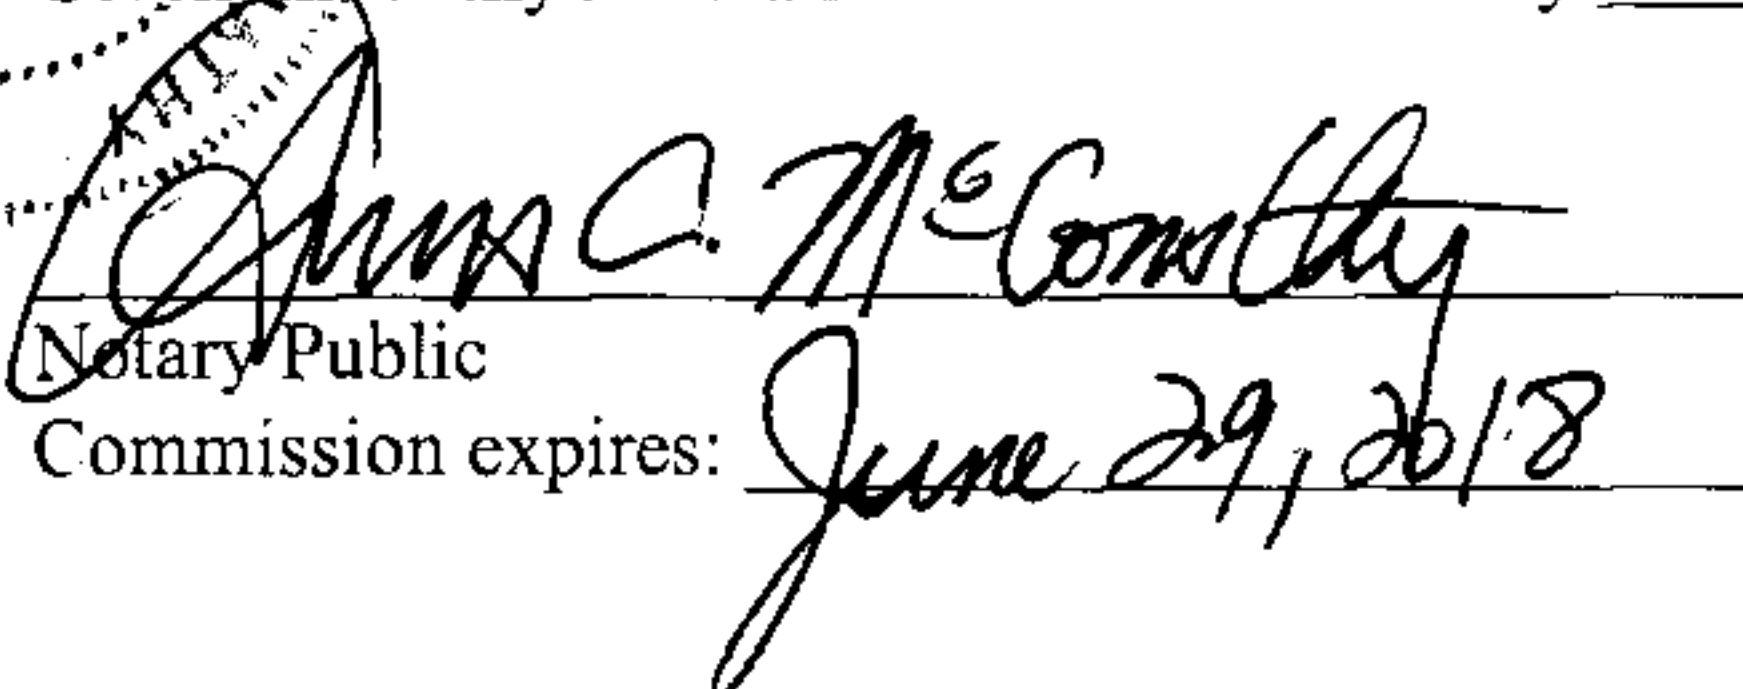 C. McConathy
Notary Public
Commission expires: June 29, 2018